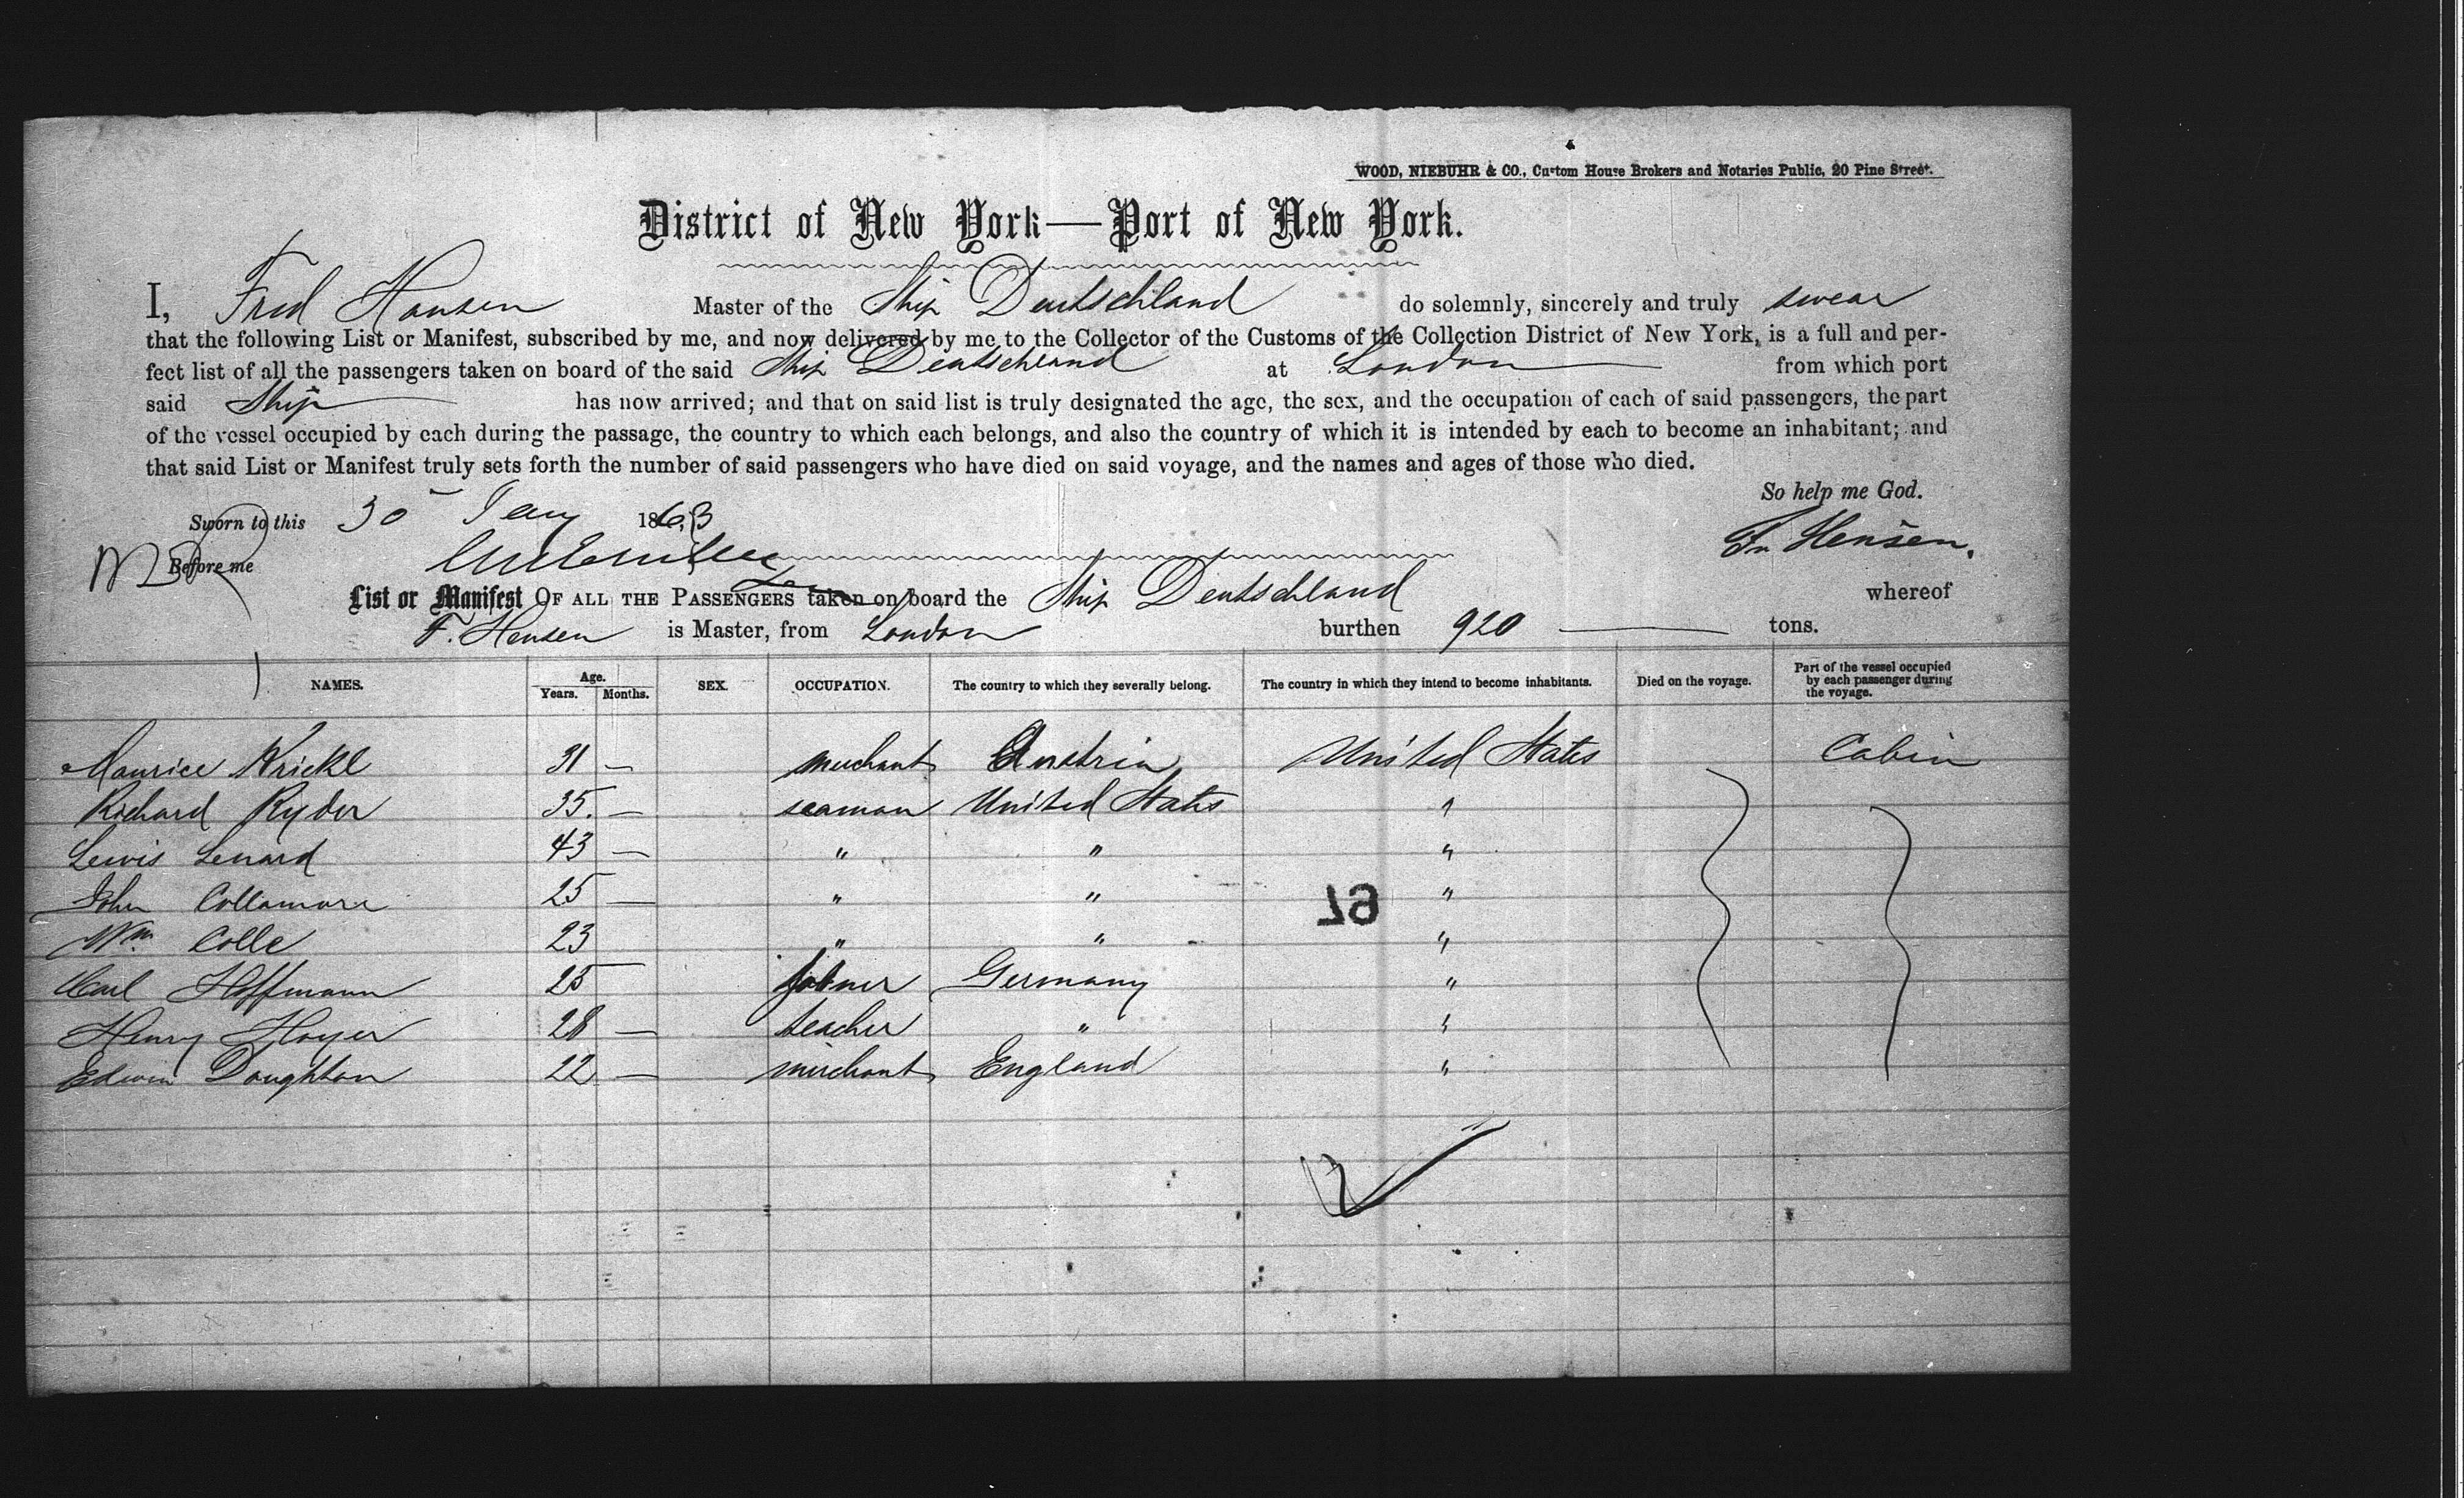 WOOD, NIEBUHR & CO., Custom House Brokers and Notaries Public, 20 Pine Street.
District of New York—Port of New York.
I, Fred Hansen Master of the Ship Deutschland do solemnly, sincerely and truly swear
that the following List or Manifest, subscribed by me, and now delivered by me to the Collector of the Customs of the Collection District of New York, is a full and per-
fect list of all the passengers taken on board of the said Ship Deutschland at London from which port
said Ship has now arrived; and that on said list is truly designated the age, the sex, and the occupation of each of said passengers, the part
of the vessel occupied by each during the passage, the country to which each belongs, and also the country of which it is intended by each to become an inhabitant; and
that said List or Manifest truly sets forth the number of said passengers who have died on said voyage, and the names and ages of those who died.
So help me God.
Sworn to this 30 Jany 1863
Fr Hensen.
Before me
List or Manifest OF ALL THE PASSENGERS taken on board the Ship Deutschland whereof
F. Hensen is Master, from London burthen 920 tons.
NAMES. Age. Years. Months. SEX. OCCUPATION. The country to which they severally belong. The country in which they intend to become inhabitants. Died on the voyage. Part of the vessel occupied by each passenger during the voyage.
Maurice Krickl 31 — merchant Austria United States Cabin
Richard Ryder 35. — seaman United States "
Lewis Lenard 43 — " " "
John Collamore 25 — " " "
Wm Colle 23 " " "
Carl Hoffmann 25 — Germany "
Henry Hoyer 28 — teacher " "
Edwin Doughton 22 — merchant England "
67